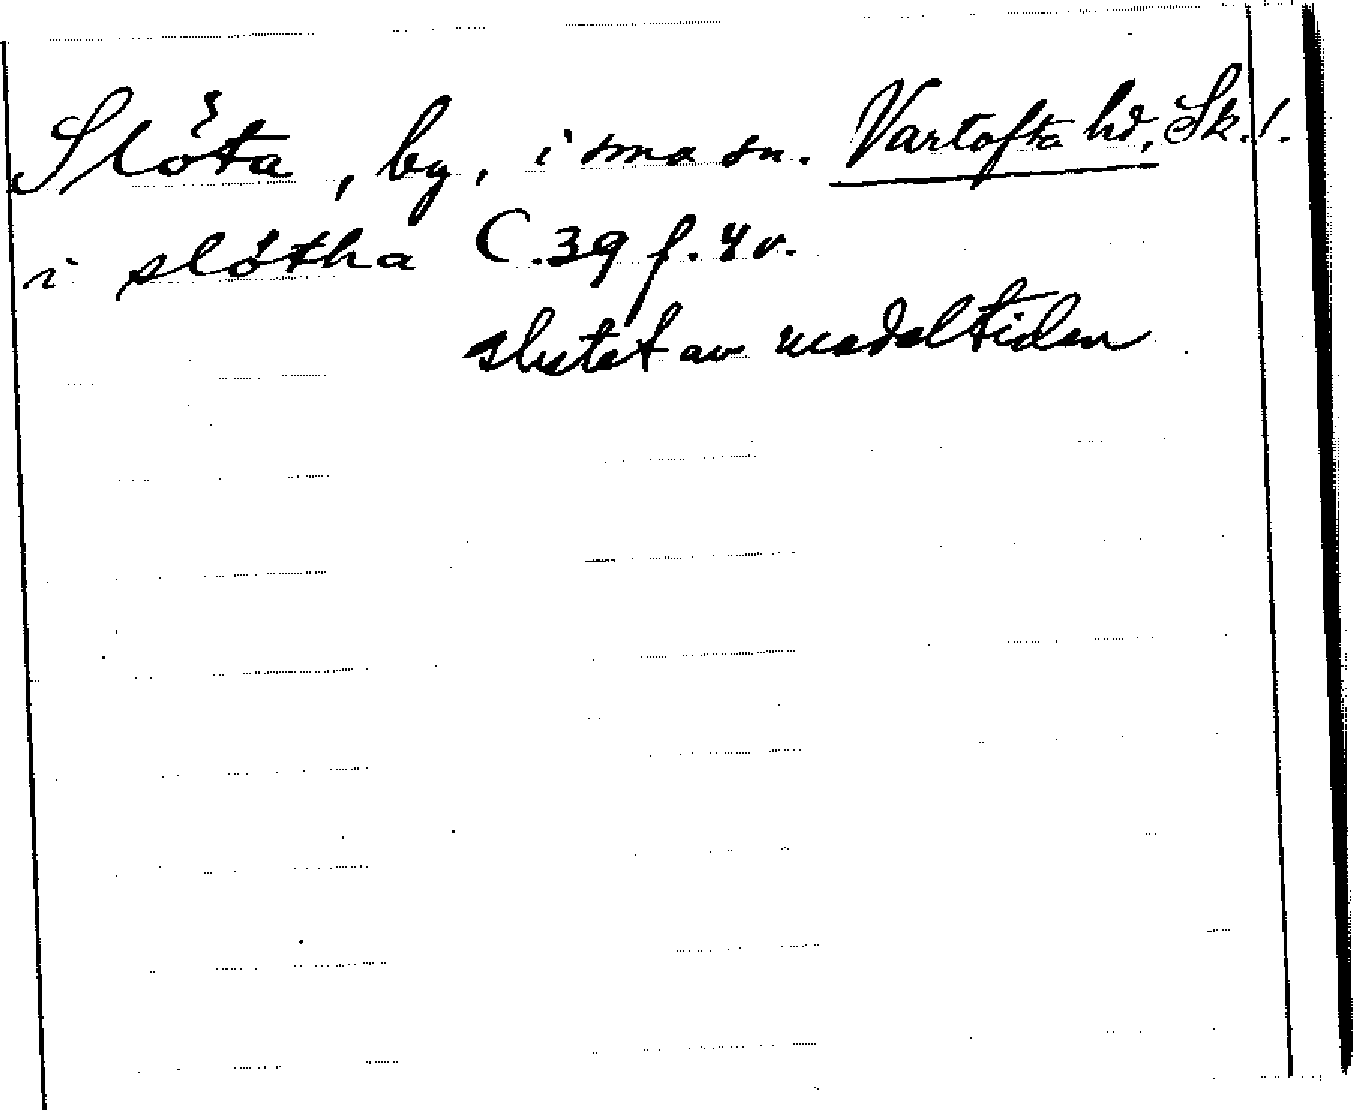 Slöta, by, i sma sn. Vartofta hd, Sk. l.
i slötha C.39 f. 4v.
slutet av medeltiden